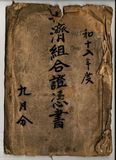 和十六年度
濟組合證憑書
九月分